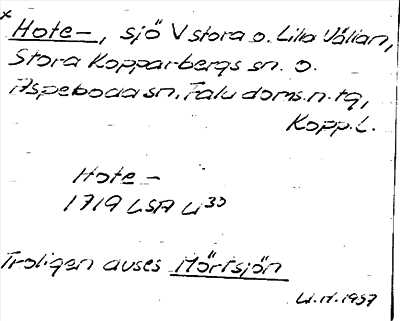 x Hote-, sjö V stora o. Lilla Vällan,
Stora Kopparbergs sn. o.
Aspeboda sn, Falu doms.n. tg,
Kopp.L.
Hote-
1719 LSA U 30
Troligen avses Mörtsjön
U.H. 1937